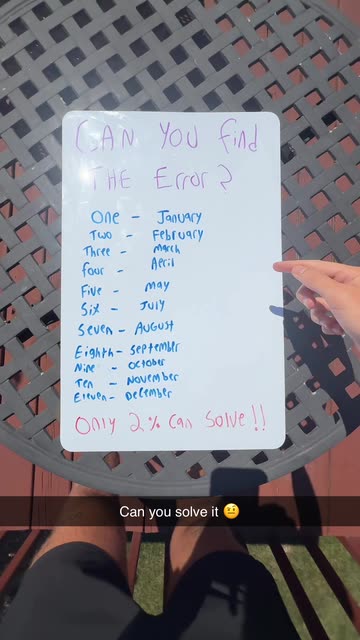 CAN YOU find
THE Error?
One - January
Two - February
Three - March
four - April
Five - may
Six - July
Seven - August
Eighth - September
Nine - October
Ten - November
Eleven - December
Only 2% can solve!!
Can you solve it 🤨